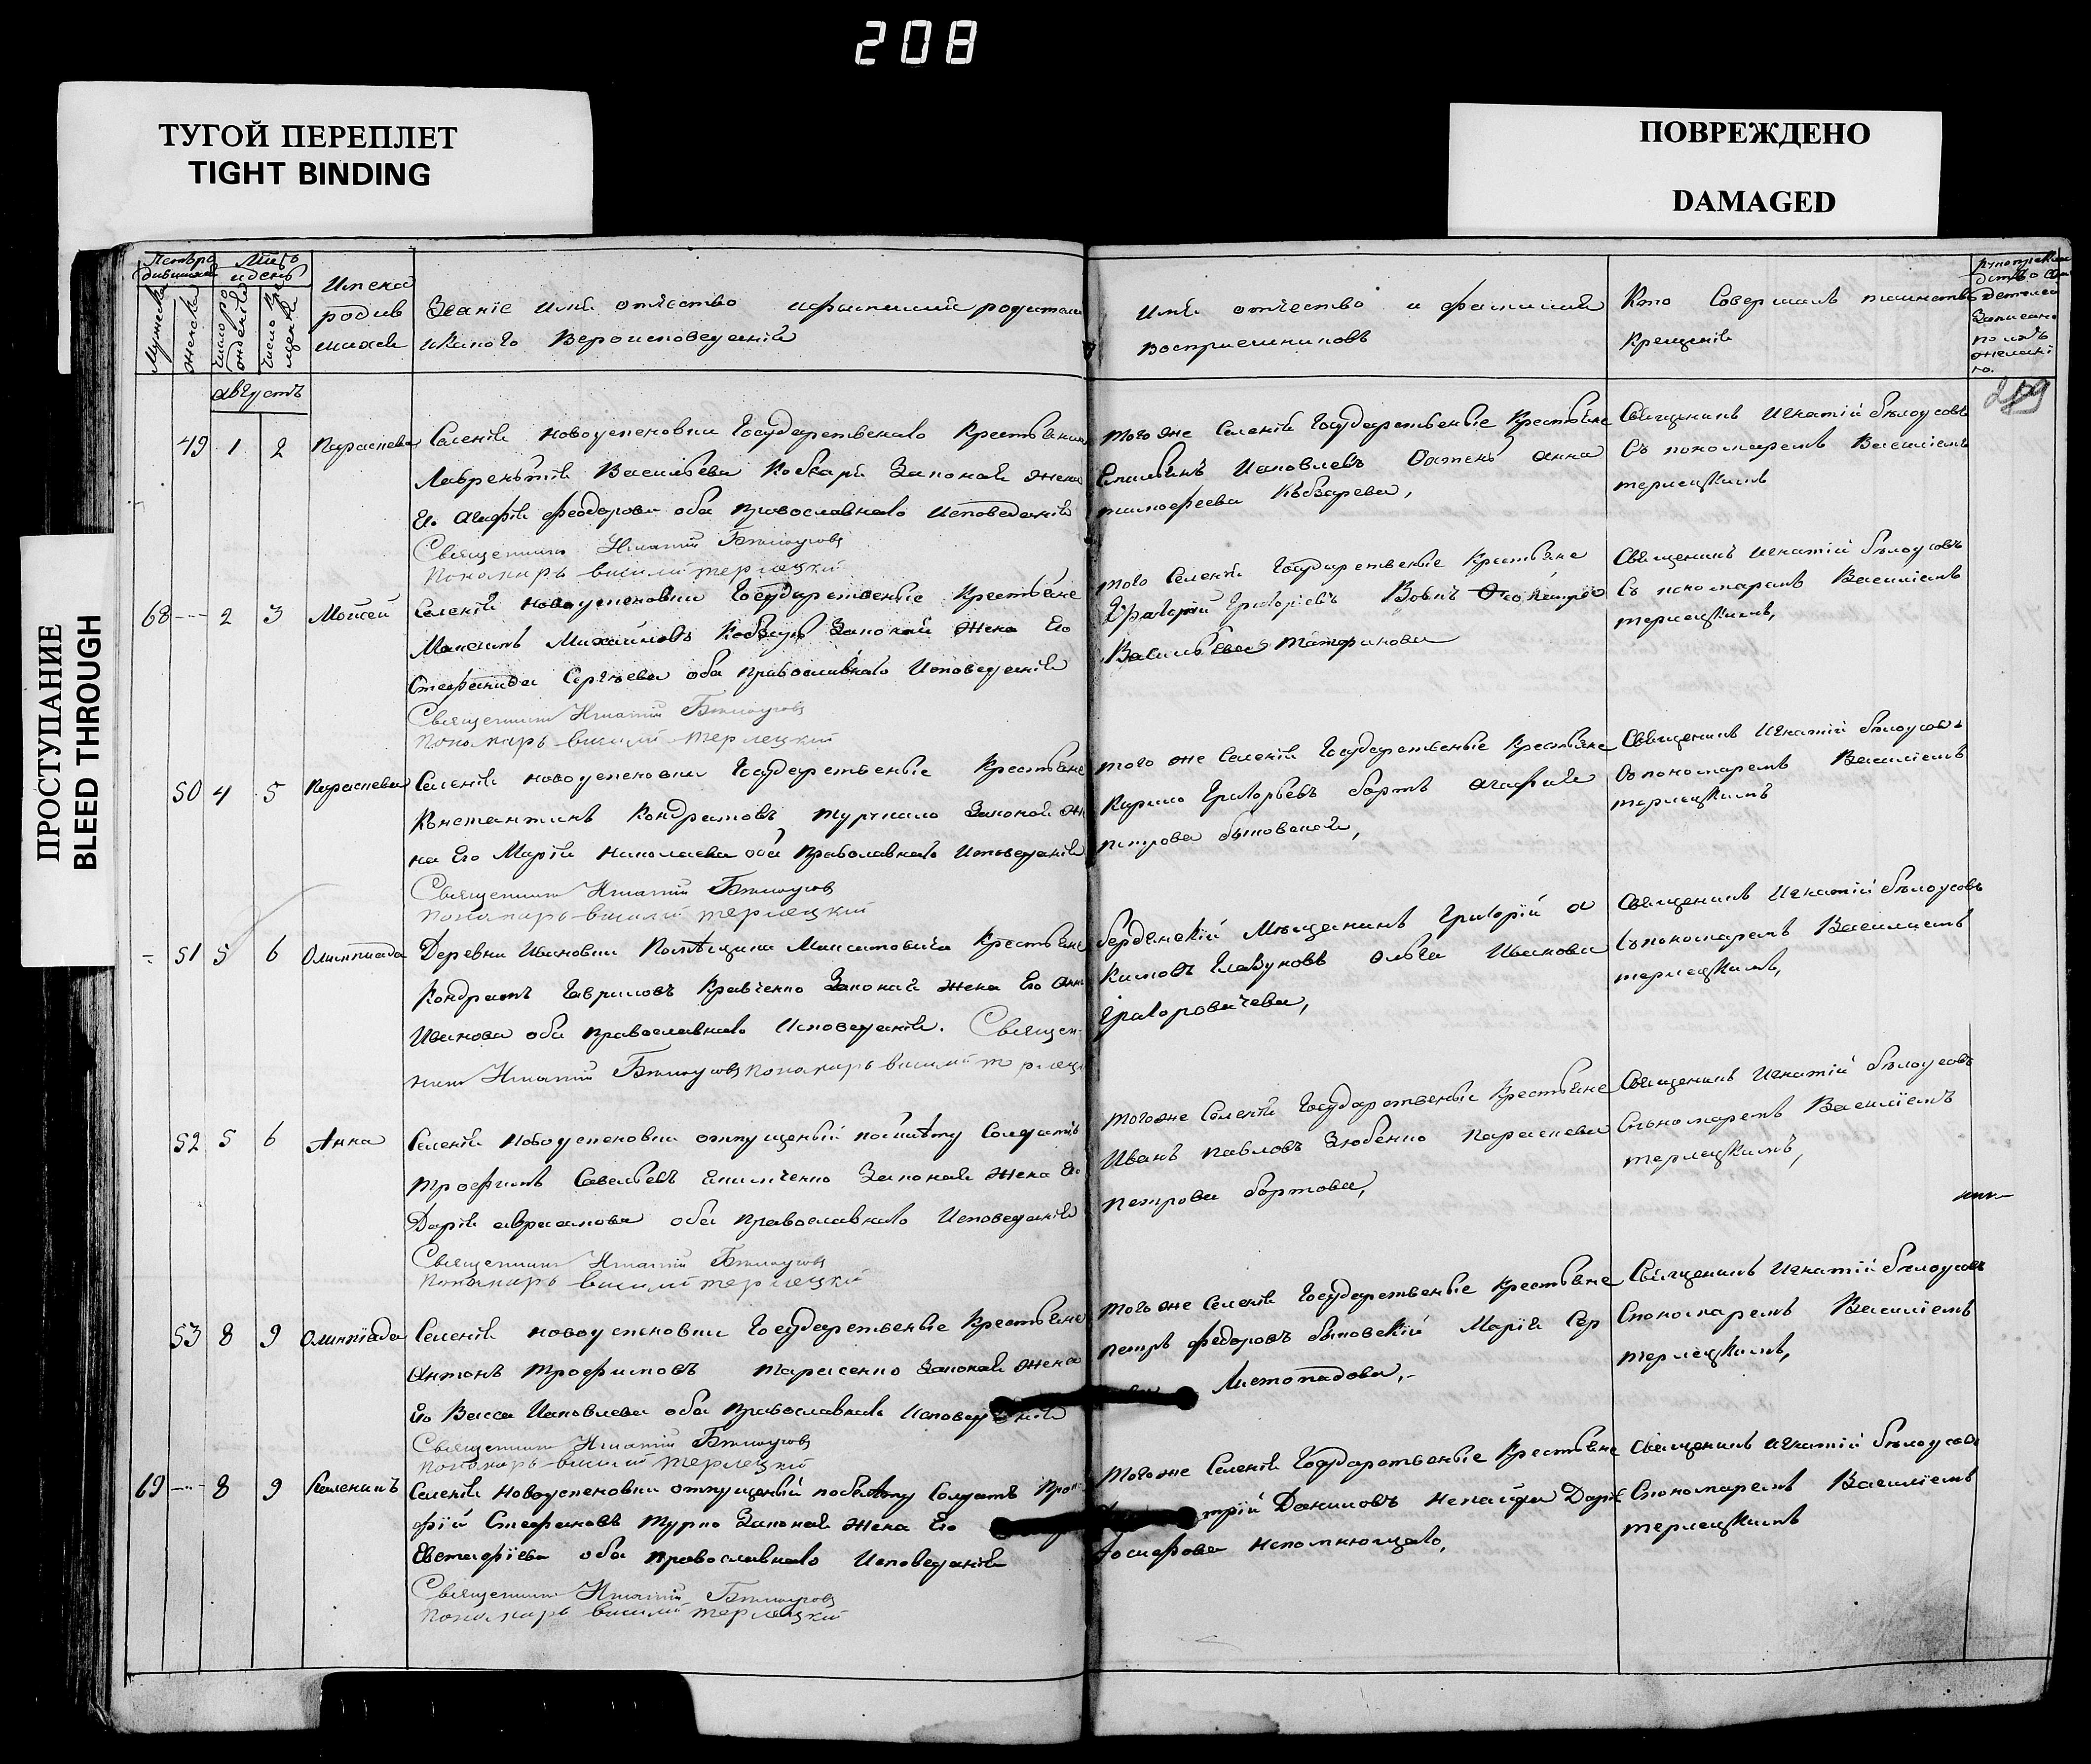 208
ТУГОЙ ПЕРЕПЛЕТ
TIGHT BINDING
ПОВРЕЖДЕНО
DAMAGED
ПРОСТУПАНИЕ
BLEED THROUGH
Мужеска
женска
Имена
родив
шихся
Званіе имя отчество и фамилия родителей
и какого Вероисповеданія
Имя отчество и фамилия
восприемниковъ
Кто Совершалъ таинство
крещенія
августъ
49 1 2 Параскева
Селенія новоуспеновки Государственаго Крестьянина
Лаврентія Васильева Кобзаря Законая жена
Его Агафія феодорова оба православнаго Исповеданія
Священникъ Игнатій Бѣлоусовъ
Пономарь василій терлецкій
того же Селенія Государственые Крестьяне
Емельянъ Иаковлевъ анна
тимофеева Кобзарева,
Священикъ Игнатій бѣлоусовъ
Съ пономаремъ Василіемъ
терлецкимъ
68 --- 2 3 Мойсей
Селенія новоуспеновки Государственые Крестьяне
Максимъ Михайловъ Кобзарь Законая Жена Его
Стефанида Сергѣева оба православнаго Исповеданія
Священникъ Игнатій Бѣлоусовъ
Пономарь василій терлецкій
того Селенія Государственые Крестьяне
Григорій Григоріевъ Вовкъ
Васильева
Священикъ Игнатій бѣлоусовъ
Съ пономаремъ Василіемъ
терлецкимъ,
50 4 5 Параскева
Селенія новоуспеновки Государственые Крестьяне
Константинъ Кондратовъ Турчило Законая Же
на Его Марія николаева оба православнаго Исповеданія
Священникъ Игнатій Бѣлоусовъ
Пономарь василій терлецкій
того же Селенія Государственые Крестьяне
Кирило Григорьевъ бортъ агафия
петрова быковская,
Священикъ Игнатій бѣлоусовъ
Съ пономаремъ Василіемъ
терлецкимъ
51 5 6 Олимпиада
Деревни Ивановки Помѣщика Крестьяне
Кондратъ Гавриловъ Кравченко Законая жена Его Анна
Иванова оба православнаго Исповеданія. Священ-
никъ Игнатій Бѣлоусовъ пономарь василій терлецкій
бердянскій Мѣщанинъ Григорій а
кимовъ Главуновъ Ольга Иванова
Григоровичева,
Священикъ Игнатій бѣлоусовъ
Съ пономаремъ Василіемъ
терлецкимъ,
52 5 6 Анна
Селенія новоуспеновки отпущеный побилету Солдатъ
трофимъ Савельевъ Климченко Законая жена Его
Дарія авраамова оба православнаго Исповеданія
Священникъ Игнатій Бѣлоусовъ
Пономарь василій терлецкій
того же Селенія Государственые Крестьяне
Иванъ павловъ Зюбенко параскева
петрова бортова,
Священикъ Игнатій бѣлоусовъ
Спономаремъ Василіемъ
терлецкимъ,
53 8 9 Олимпіада
Селенія новоуспеновки Государственые Крестьяне
Антонъ трофимовъ тарасенко Законая жена
Его Васса Иаковлева оба православнаго Исповеданія
Священникъ Игнатій Бѣлоусовъ
Пономарь василій терлецкій
того же Селенія Государственые Крестьяне
петръ федоровъ быковскій Марія Сер
Листопадова,
Священикъ Игнатій бѣлоусовъ
Спономаремъ Василіемъ
терлецкимъ,
69 --- 8 9
Селенія новоуспеновки отпущеный побилету Солдатъ Проко
фій Стефановъ Турко Законая жена Его
Евстафіева оба православнаго Исповеданія
Священникъ Игнатій Бѣлоусовъ
Пономарь василій терлецкій
того же Селенія Государственые Крестьяне
трій Даниловъ Дарія
Іосифова непомнющаго,
Священикъ Игнатій бѣлоусовъ
Спономаремъ Василіемъ
терлецкимъ